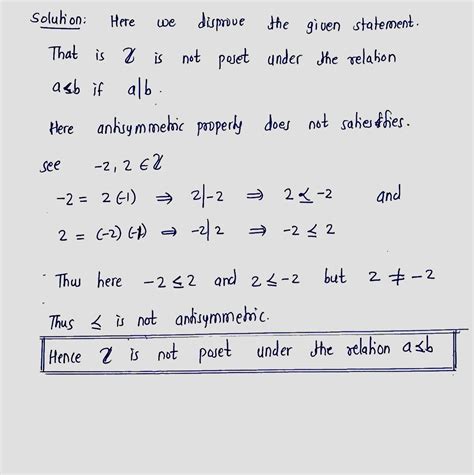 Solution: Here we disprove the given statement.
That is ℤ is not poset under the relation
a≤b if a|b.
Here antisymmetric property does not satiesfies.
see -2, 2 ∈ ℤ
-2 = 2(-1) ⇒ 2|-2 ⇒ 2 ≤ -2 and
2 = (-2)(-1) ⇒ -2|2 ⇒ -2 ≤ 2
Thus here -2 ≤ 2 and 2 ≤ -2 but 2 ≠ -2
Thus ≤ is not antisymmetric.
Hence ℤ is not poset under the relation a≤b